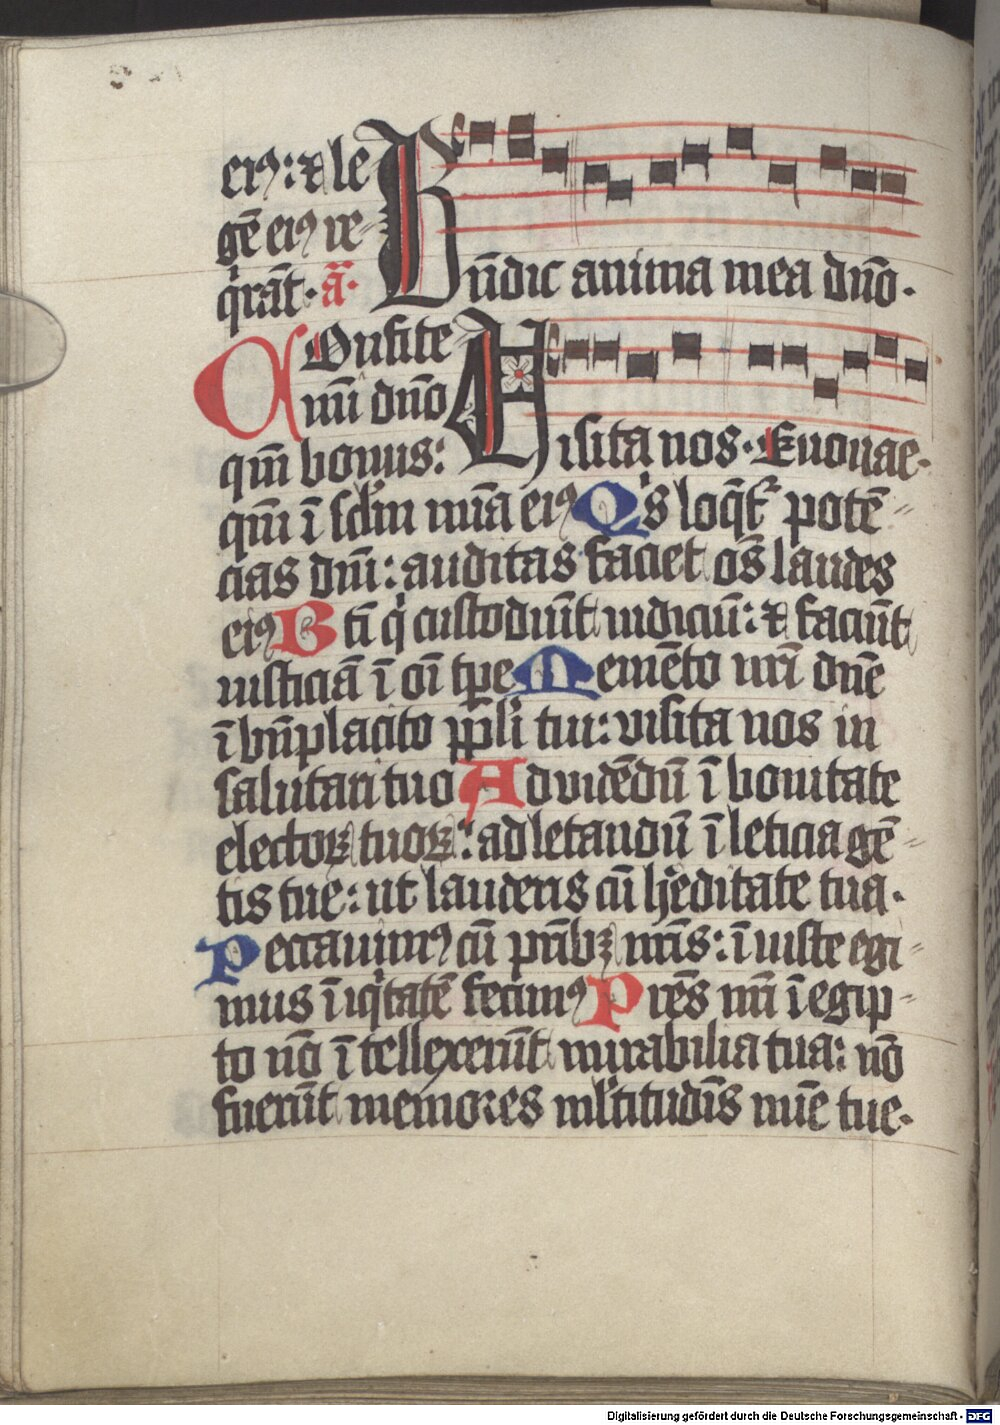 eiꝰ: ⁊ le
gē eiꝰ re-
q̇rāt· aͣ·
Bn̄dic anima mea dn̄o·
COnfite
mi dn̄o
qm̄ bonus:
Visita nos· Euouae·
qm̄ ī sclm̄ mīa eiꝰ Qͥs loq̄tͬ potē-
cias dn̄i: auditas faciet oēs laudes
eiꝰ Bt̄i q̇ custodiūt iudiciū: ⁊ faciūt
iusticiā ī oī tꝑe Memēto nr̄i dn̄e
ī bn̄placito ppl̄i tui: visita nos in
salutari tuo Ad vidēdū ī bonitate
electoꝝ tuoꝝ: ad letandū ī leticia gē-
tis tue: ut lauderis cū h̄editate tua·
Peccauimꝰ cū pr̄ibꝫ nr̄is: īiuste egi-
mus īiq̇tatē fecimꝰ Pr̄es nr̄i ī egip-
to nō ītellexerūt mirabilia tua: nō
fuerūt memores ml̄titudīs mīe tue·
Digitalisierung gefördert durch die Deutsche Forschungsgemeinschaft - DFG